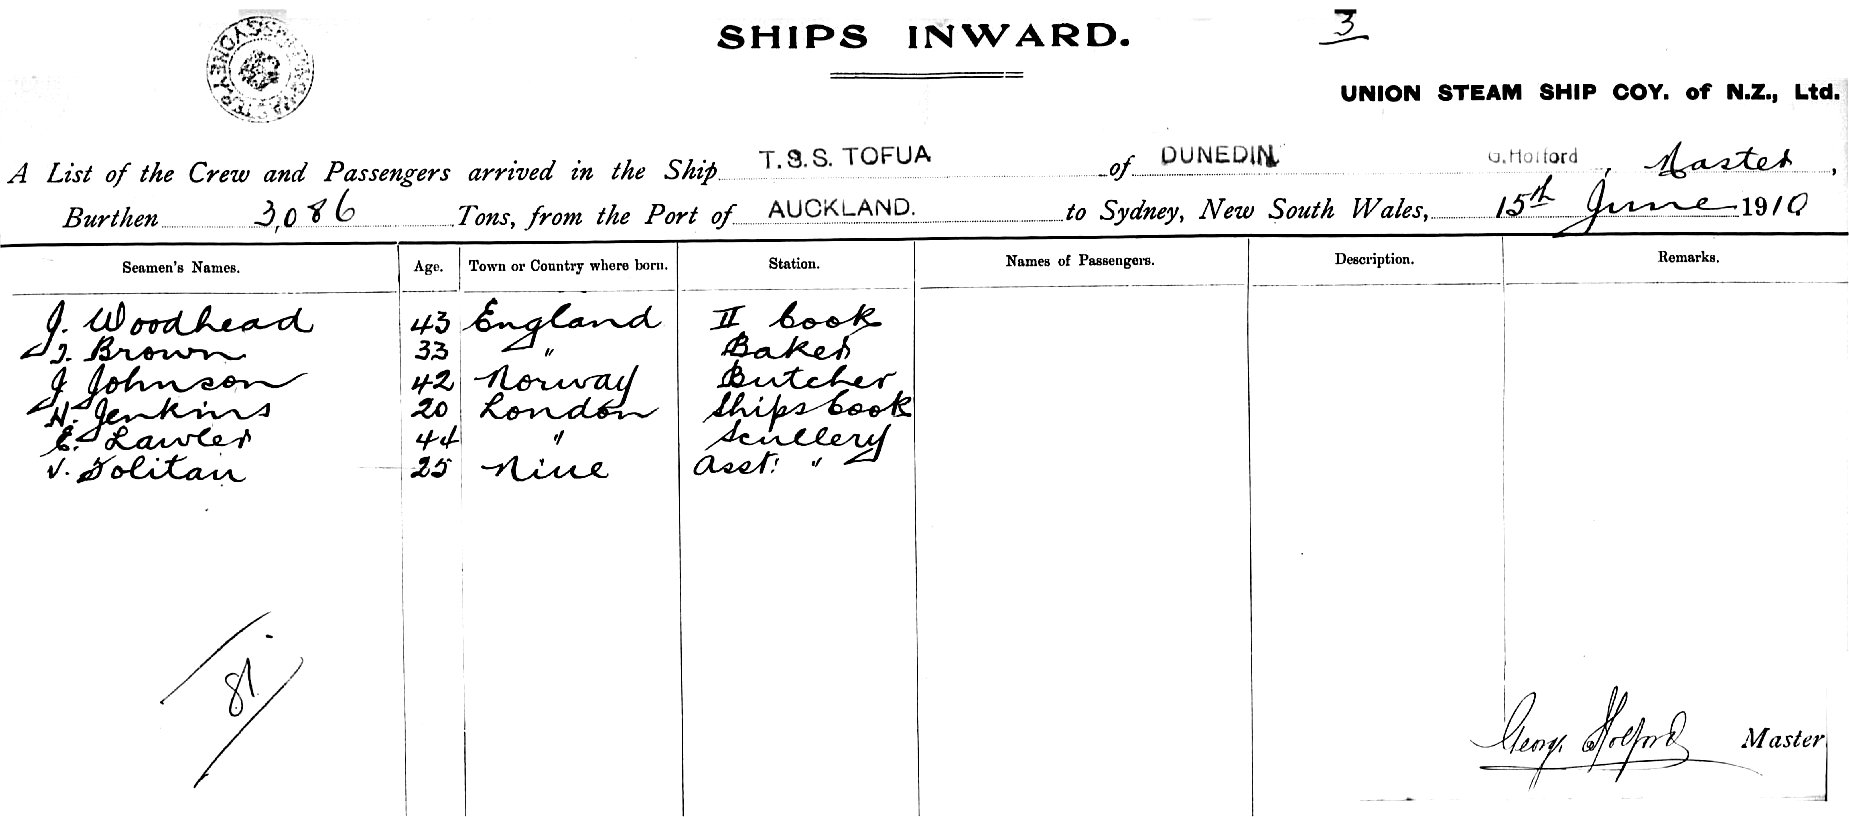 SHIPS INWARD.
3
UNION STEAM SHIP COY. of N.Z., Ltd.
A List of the Crew and Passengers arrived in the Ship T.S.S. TOFUA of DUNEDIN G. Holford, Master,
Burthen 3,086 Tons, from the Port of AUCKLAND. to Sydney, New South Wales, 15th June 1910
Seamen's Names. Age. Town or Country where born. Station. Names of Passengers. Description. Remarks.
J. Woodhead 43 England II Cook
J. Brown 33 " Baker
J Johnson 42 Norway Butcher
H. Jenkins 20 London Ships Cook
E. Lawler 44 " Scullery
V. Folitau 25 Niue Asst. "
81
George Holford Master